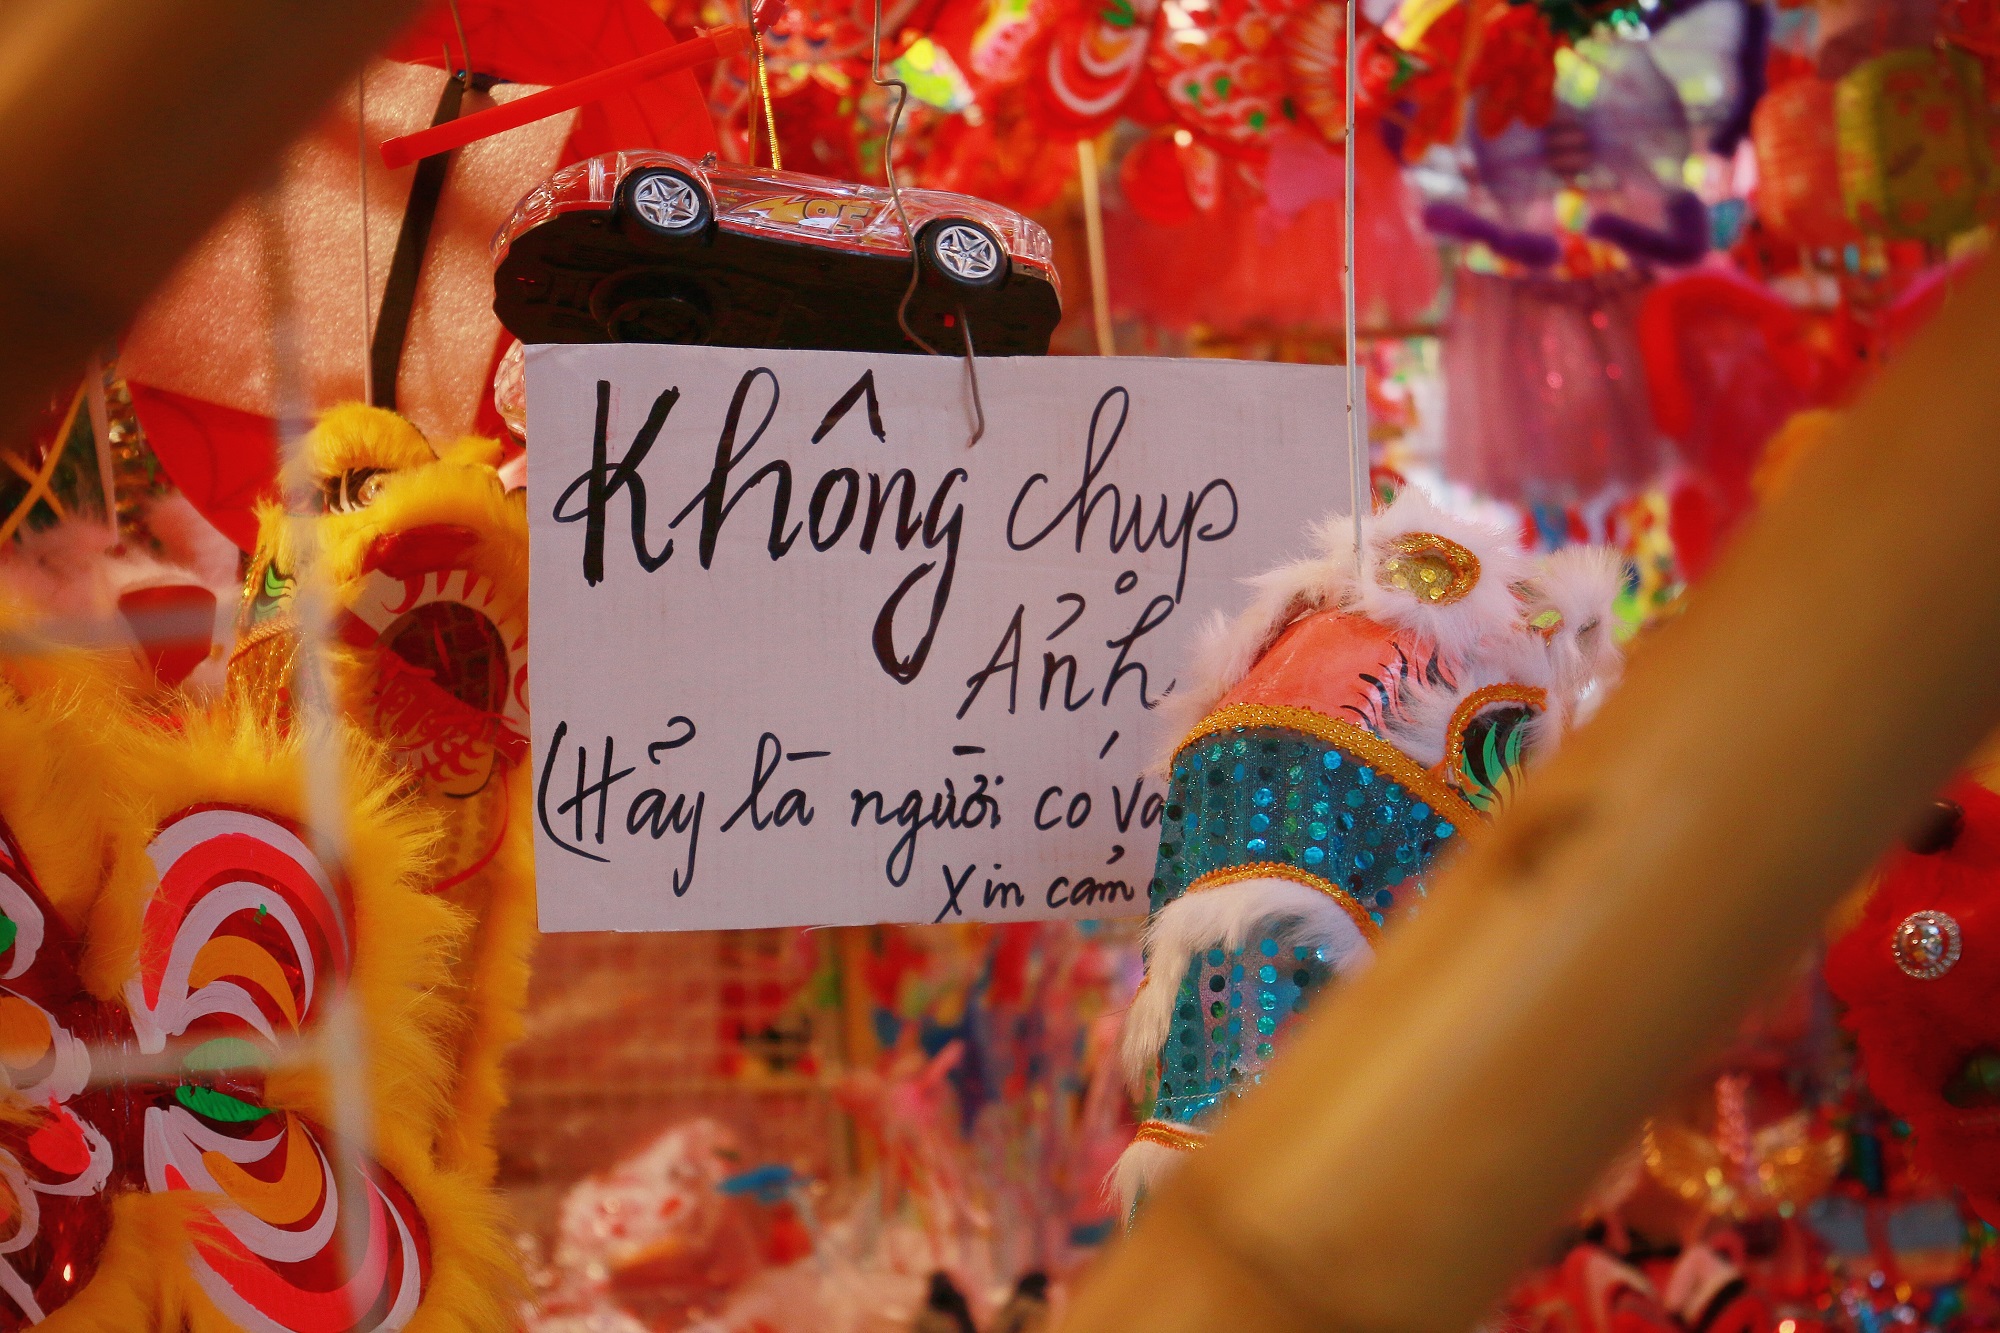 Không chụp
Ảnh
(Hãy là người có
Xin cảm